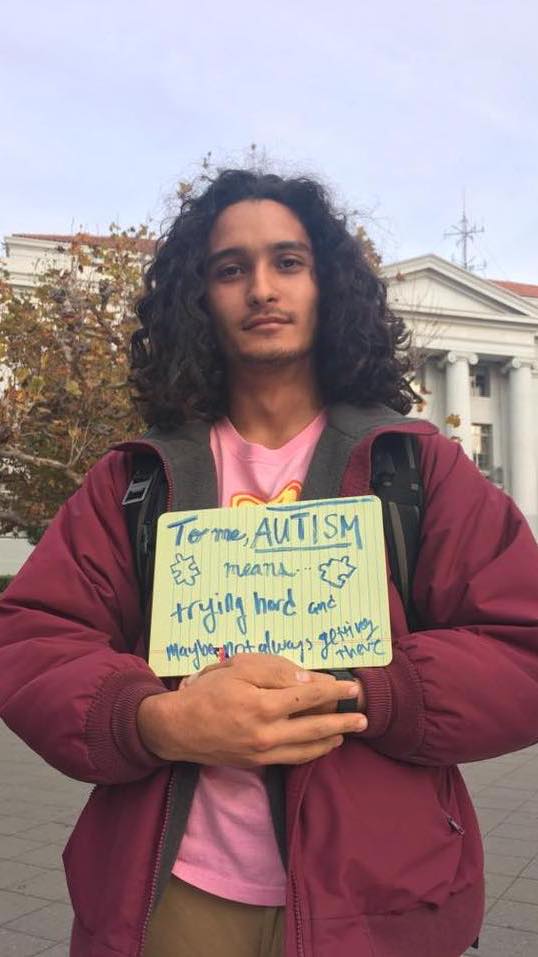 To me, AUTISM
means...
trying hard and
Maybe not always getting
there